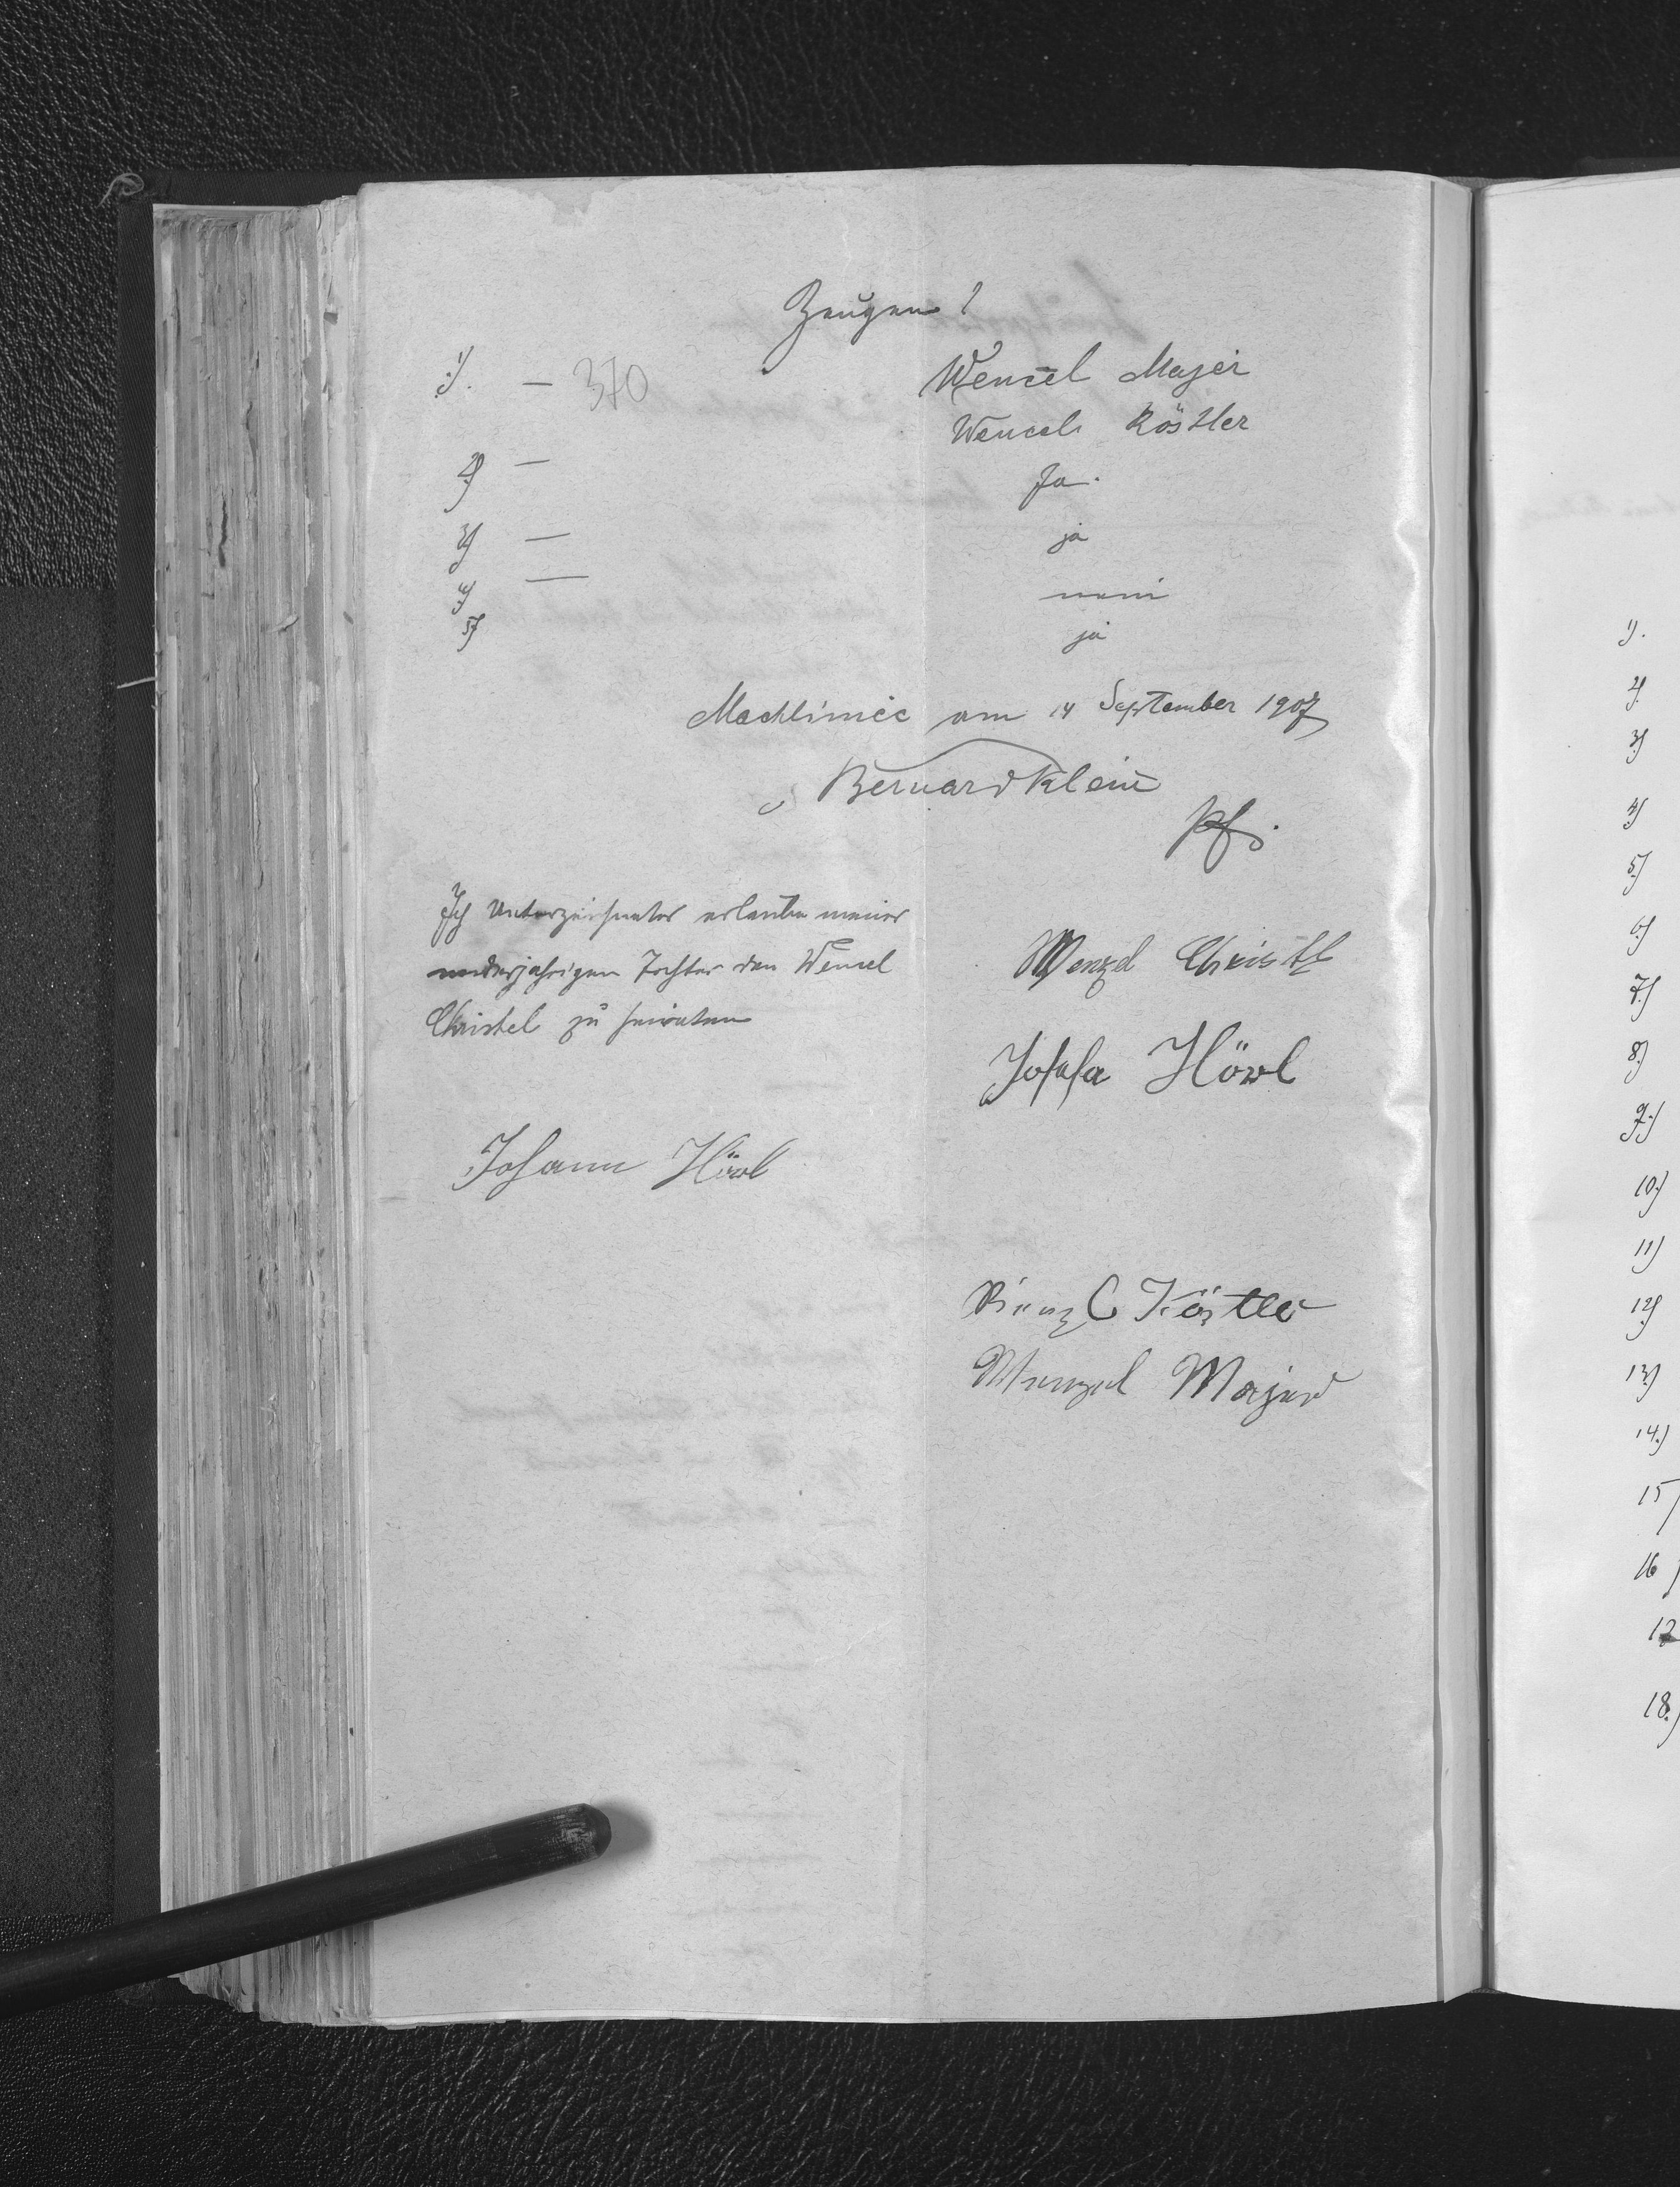 Zeugen?
1). — 370 Wencel Majer
Wencel Köstler
2) — Ja.
3) — ja
4) — nein
5) ja
am 14 September 1907
Bernard Klein
Pf.
Ich Unterzeichneter erlaube meiner
minderjahrigen Tochter den Wencel
Christel zu heiraten
Wenzel Christl
Josefa Hörl
Johann Hörl
Wenzl Köstler
Wenzel Majer
1).
2)
3)
4)
5)
6)
7)
8)
9)
10)
11)
12)
13)
14.)
15)
16)
17
18.)